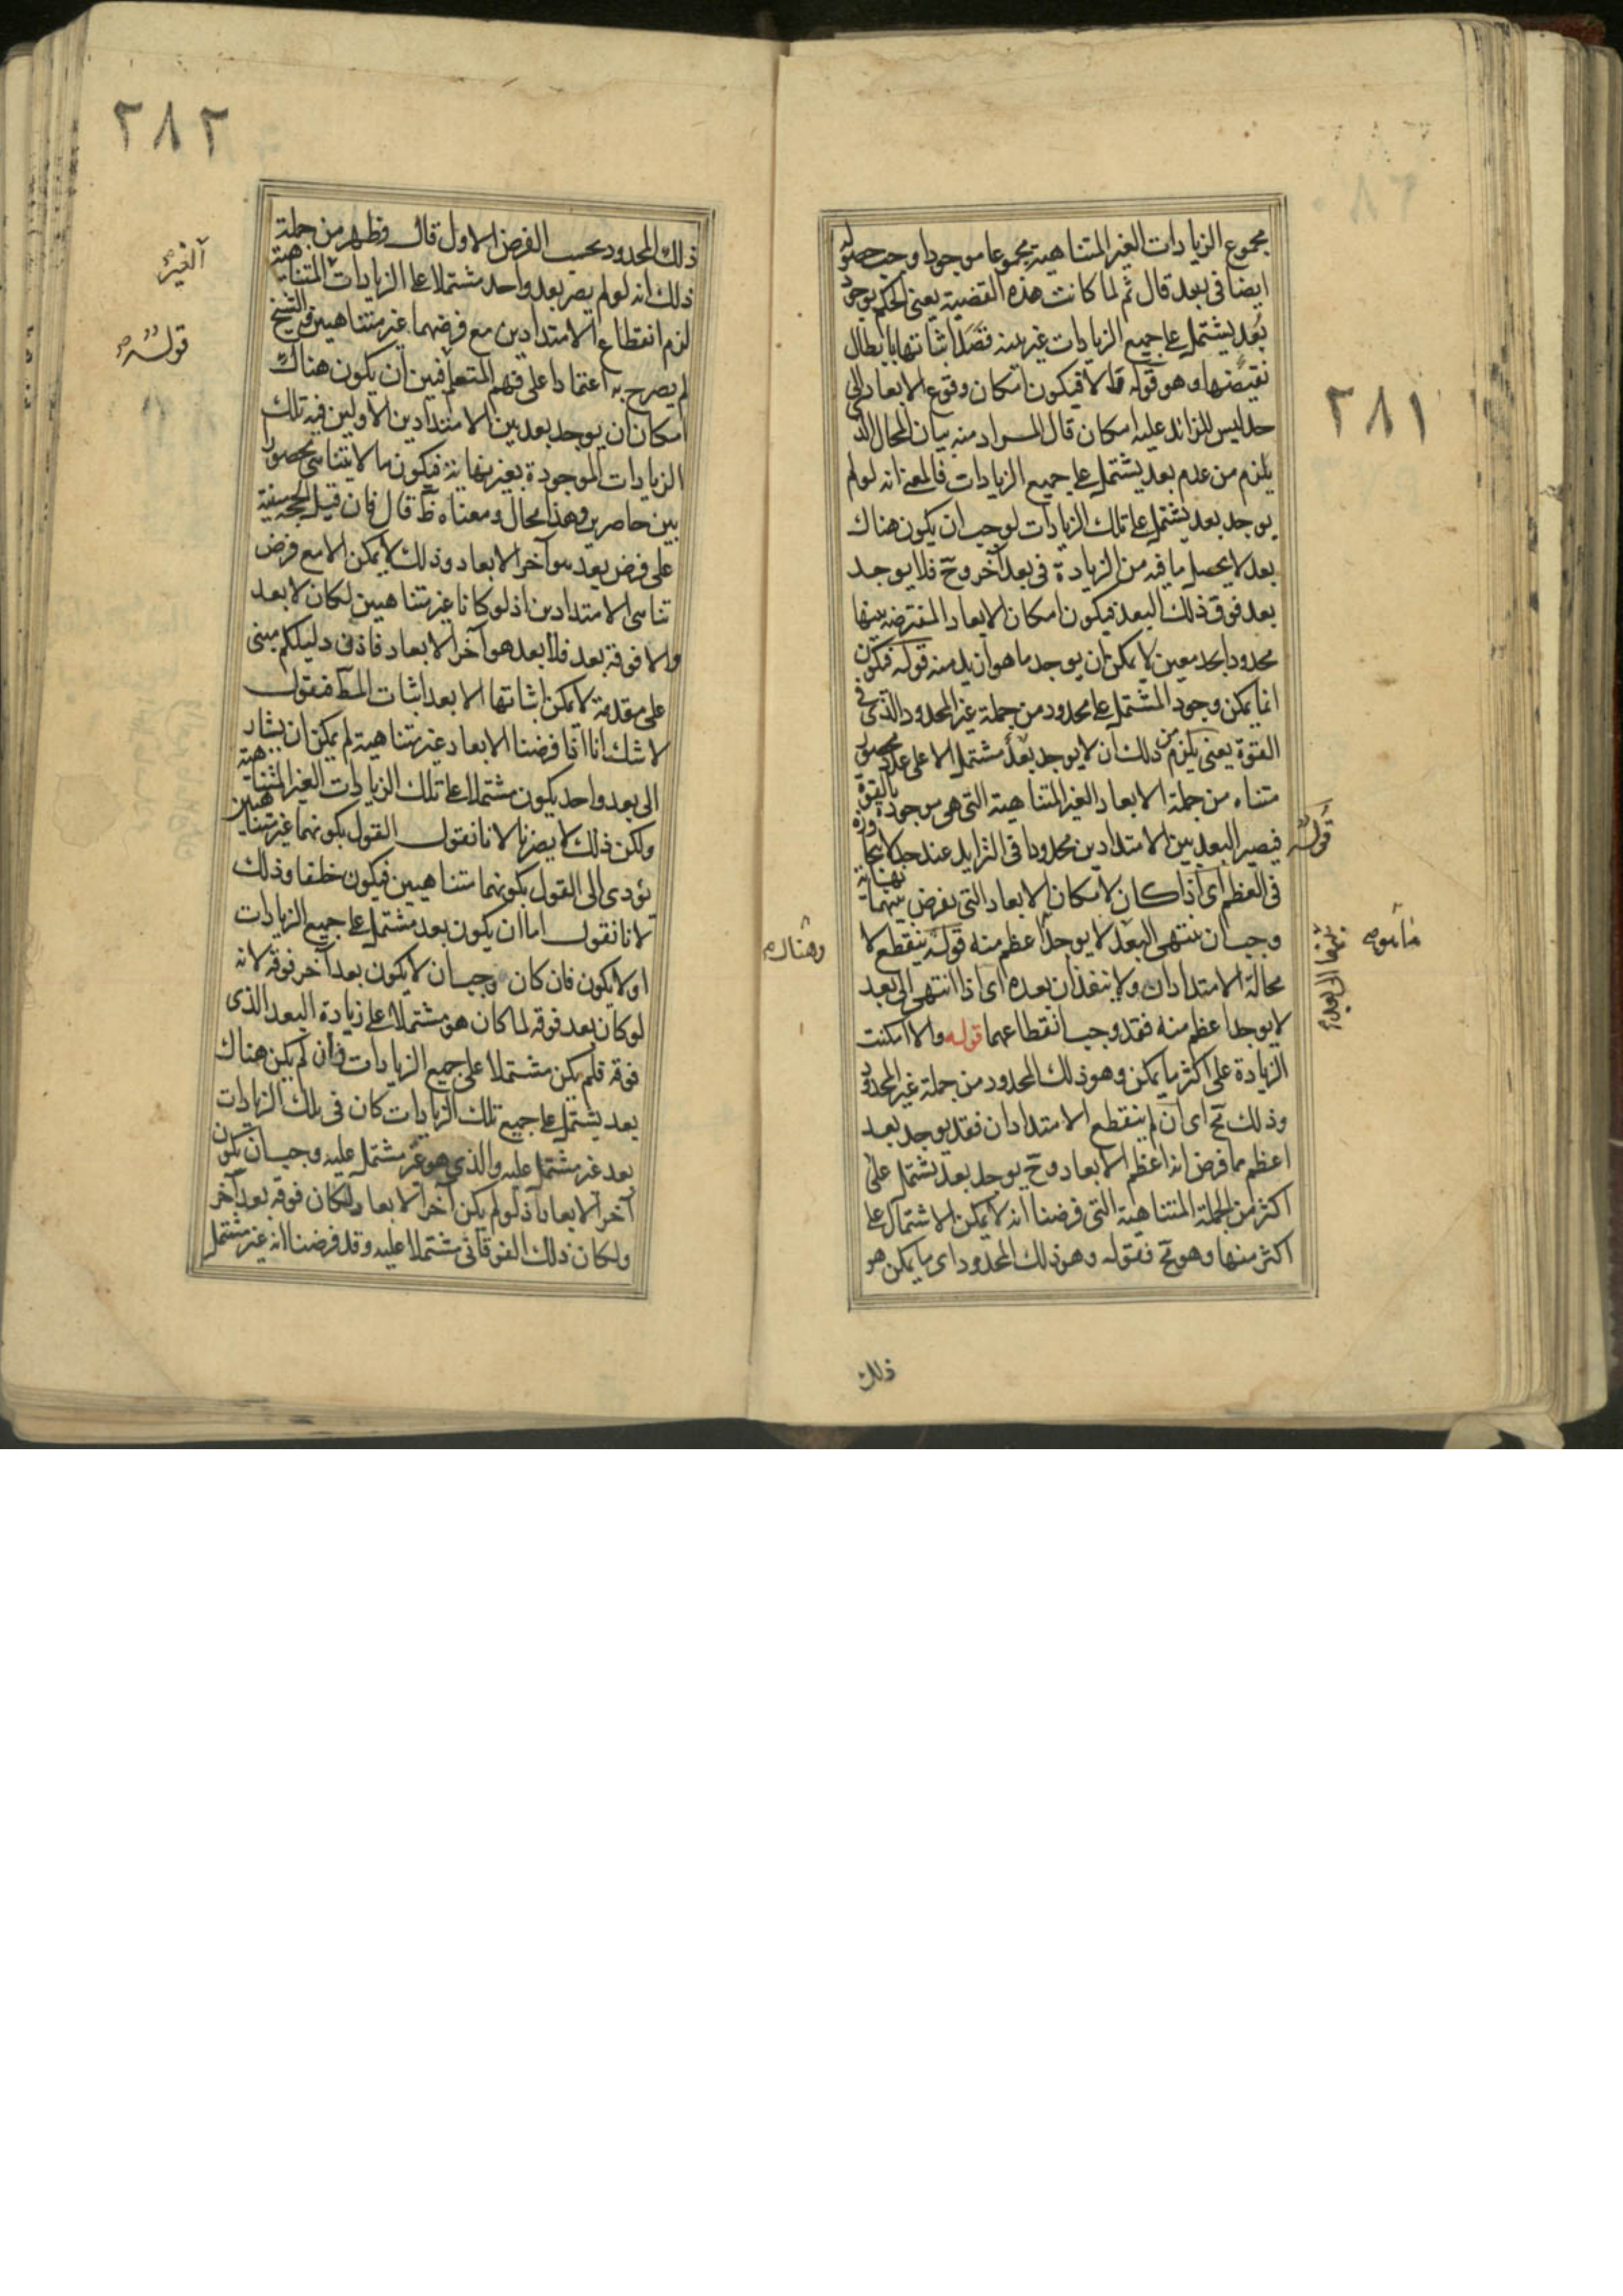 ٢٨١
مجموع الزيادات الغير المتناهية مجموعا موجودا وجب حصوله
ايضا فى بعد قال ثم لما كانت هذه القضية يعنى الحكم بوجود
بعد يشتمل على جميع الزيادات غير بينه قصد اثباتها بابطال
نقيضها وهو قوله والا فيكون امكان وقوع الابعاد الى
حد ليس للزائد عليه امكان قال المراد منه بيان المحال الذى
يلزم من عدم بعد يشتمل على جميع الزيادات فالمعنى انه لو لم
يوجد بعد يشتمل على تلك الزيادات لوجب ان يكون هناك
بعد لا يحصل ما فيه من الزيادة فى بعد آخر وح فلا يوجد
بعد فوق ذلك البعد فيكون امكان الابعاد المفترضه بينها
محدودا بحد معين لا يمكن ان يوجد ما هو ازيد منه قوله فيكون
انما يمكن وجود المشتمل على محدود من جملة غير المحدود الذى فى
القوة يعنى يلزم من ذلك ان لا يوجد بعد مشتمل الا على عدد محصور
متناه من جملة الابعاد الغير المتناهية التى هى موجودة بالقوة
قوله
فيصير البعد بين الامتدادين محدودا فى التزايد عند حد لا يتجاوزه
فى العظم اى اذا كان لامكان الابعاد التى يفرض بينهما نهاية
وجب ان ينتهى البعد لا يوجد اعظم منه قوله ينقطع لا
محالة الامتدادان ولا ينفذان بعده اى اذا انتهى الى بعد
لا يوجد اعظم منه فقد وجب انقطاعهما قوله والا امكنت
الزيادة على اكثر ما يمكن وهو ذلك المحدود من جملة غير المحدود
وذلك مح اى ان لم ينقطع الامتدادان فقد يوجد بعد
اعظم مما فرض انه اعظم الابعاد وح يوجد بعد يشتمل على
اكثر من الجملة المتناهية التى فرضنا انه لا يمكن الاشتمال على
اكثر منها وهو مح فقوله وهو ذلك المحدود اى ما يمكن هو
ذلك
٢٨٢
ذلك المحدود بحسب الفرض الاول قال فظهر من جملة
ذلك انه لو لم يصر بعد واحد مشتملا على الزيادات المتناهية
الغير
لزم انقطاع الامتدادين مع فرضهما غير متناهيين والشيخ
قوله
لم يصرح به اعتمادا على فهم المتعلمين ان يكون هناك
امكان ان يوجد بعد بين الامتدادين الاولين فيه تلك
الزيادات الموجودة بغير نهاية فيكون ما لا يتناهى محصورا
بين حاصرين وهذا محال ومعناه ظ قال فان قيل الحجة مبنية
على فرض بعد هو آخر الابعاد وذلك لا يمكن الا مع فرض
تناهى الامتدادين اذ لو كانا غير متناهيين لكان لا بعد
والا فوقه بعد فلا بعد هو آخر الابعاد فاذن دليلكم مبنى
على مقدمة لا يمكن اثباتها الا بعد اثبات المط فنقول
لا شك انا اذا فرضنا الابعاد غير متناهية لم يمكن ان يشار
الى بعد واحد يكون مشتملا على تلك الزيادات الغير المتناهية
ولكن ذلك لا يضرنا لانا نقول القول بكونهما غير متناهيين
يؤدى الى القول بكونهما متناهيين فيكون خلفا وذلك
لانا نقول اما ان يكون بعد مشتمل على جميع الزيادات
او لا يكون فان كان وجب ان لا يكون بعد آخر فوقه لانه
لو كان بعد فوقه لما كان هو مشتملا على زيادة البعد الذى
فوقه فلم يكن مشتملا على جميع الزيادات وان لم يكن هناك
بعد يشتمل على جميع تلك الزيادات كان فى تلك الزيادات
بعد غير مشتمل عليه والذى هو غير مشتمل عليه وجب ان يكون
آخر الابعاد اذ لو لم يكن آخر الابعاد لكان فوقه بعد آخر
ولكان ذلك الفوقانى مشتملا عليه وقد فرضنا انه غير مشتمل